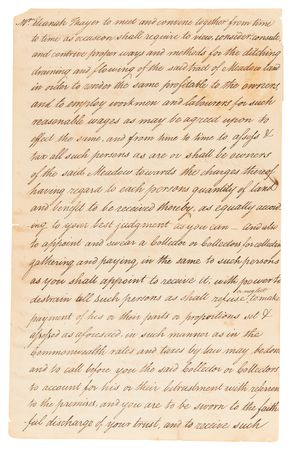 Mr Elkanah Thayer to meet and convene together from time
to time as occasion shall require to view consider, consult
and contrive proper ways and methods for the ditching
draining and flowing of the said Tract of Meadow land
in order to render the same profitable to the owners
and to employ workmen and labourers for such
reasonable wages as may be agreed upon to
effect the same, and from time to time to assess &
tax all such persons as are or shall be owners
of the said Meadow towards the charges thereof
having regard to each persons quantity of land
and benefit to be received thereby, as equally accord
ing to your best judgment as you can — And also
to appoint and swear a Collector or Collectors for collecting
gathering and paying in the same to such persons
as you shall appoint to receive it, with power to
distrain all such persons as shall refuse or neglect to make
payment of his or their parts or proportions set &
assessed as aforesaid in such manner as in the
Commonwealth rates and taxes by law may be done
and to call before you the said Collector or Collectors
to account for his or their betrustment with reference
to the premises, and you are to be sworn to the faith
ful discharge of your trust, and to receive such